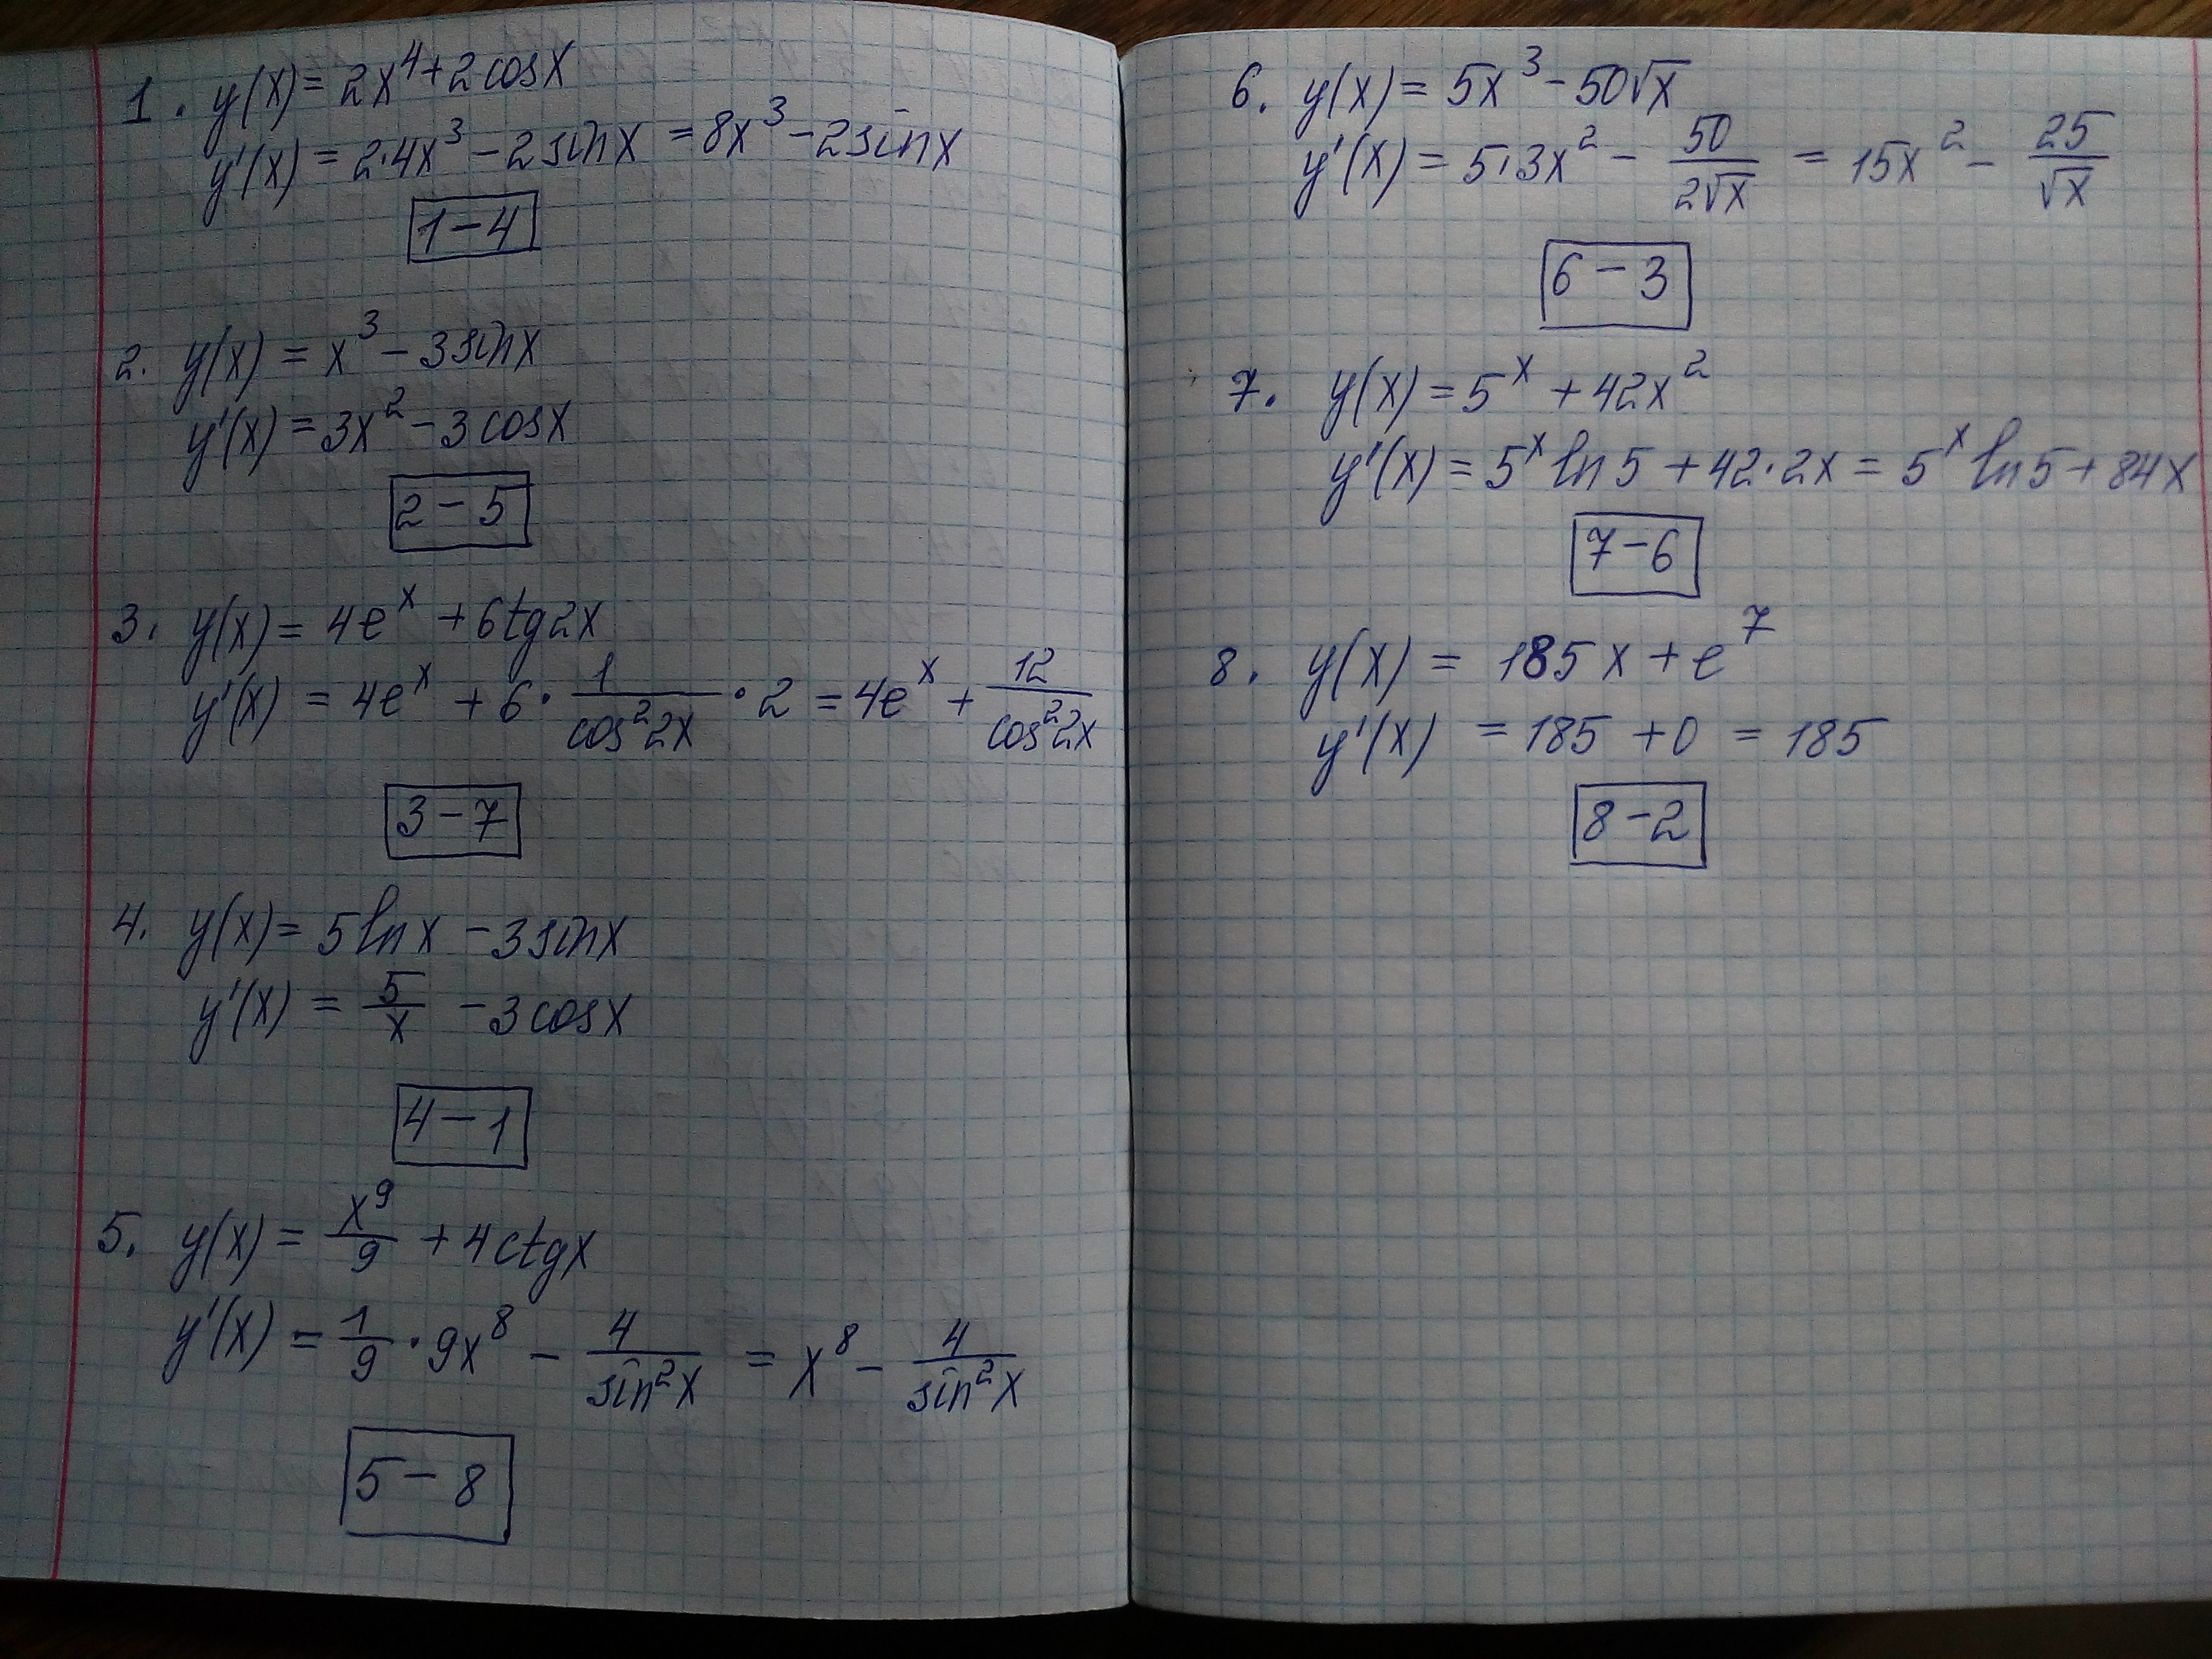 1. y(x) = 2x⁴ + 2cosx
y'(x) = 2·4x³ − 2sinx = 8x³ − 2sinx
1 − 4
2. y(x) = x³ − 3sinx
y'(x) = 3x² − 3cosx
2 − 5
3. y(x) = 4eˣ + 6tg2x
y'(x) = 4eˣ + 6 · 1/cos²2x · 2 = 4eˣ + 12/cos²2x
3 − 7
4. y(x) = 5lnx − 3sinx
y'(x) = 5/x − 3cosx
4 − 1
5. y(x) = x⁹/9 + 4ctgx
y'(x) = 1/9 · 9x⁸ − 4/sin²x = x⁸ − 4/sin²x
5 − 8
6. y(x) = 5x³ − 50√x
y'(x) = 5·3x² − 50/2√x = 15x² − 25/√x
6 − 3
7. y(x) = 5ˣ + 42x²
y'(x) = 5ˣ ln5 + 42·2x = 5ˣ ln5 + 84x
7 − 6
8. y(x) = 185x + e⁷
y'(x) = 185 + 0 = 185
8 − 2